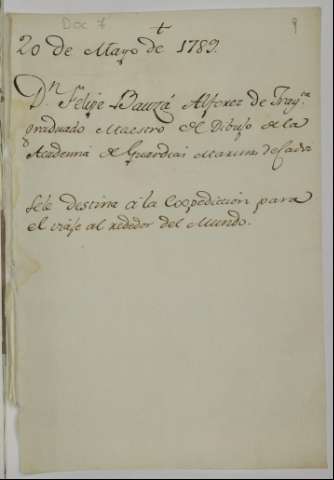 Doc 7
9
20 de Mayo de 1789.
Dn. Felipe Bauzá Alferez de Fragta.
graduado Maestro de Dibujo de la
Academia de Guardias Marinas de Cadiz
Sele destina á la Expedicion para
el viaje al rededor del Mundo.